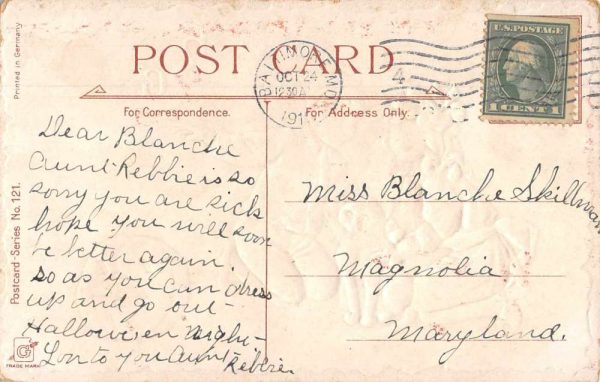 POST CARD
For Correspondence.
For Address Only.
Printed in Germany
Postcard-Series No. 121.
TRADE MARK
BALTIMORE, MD.
OCT 24
1230A
191
4
U.S. POSTAGE
1 CENT 1
Dear Blanche
Aunt Rebbie is so
sorry you are sick
hope you will soon
be better again.
so as you can dress
up and go out
Hallowe'en night
to you Aunt
Rebbie
Miss Blanche Skillman
Magnolia
Maryland.